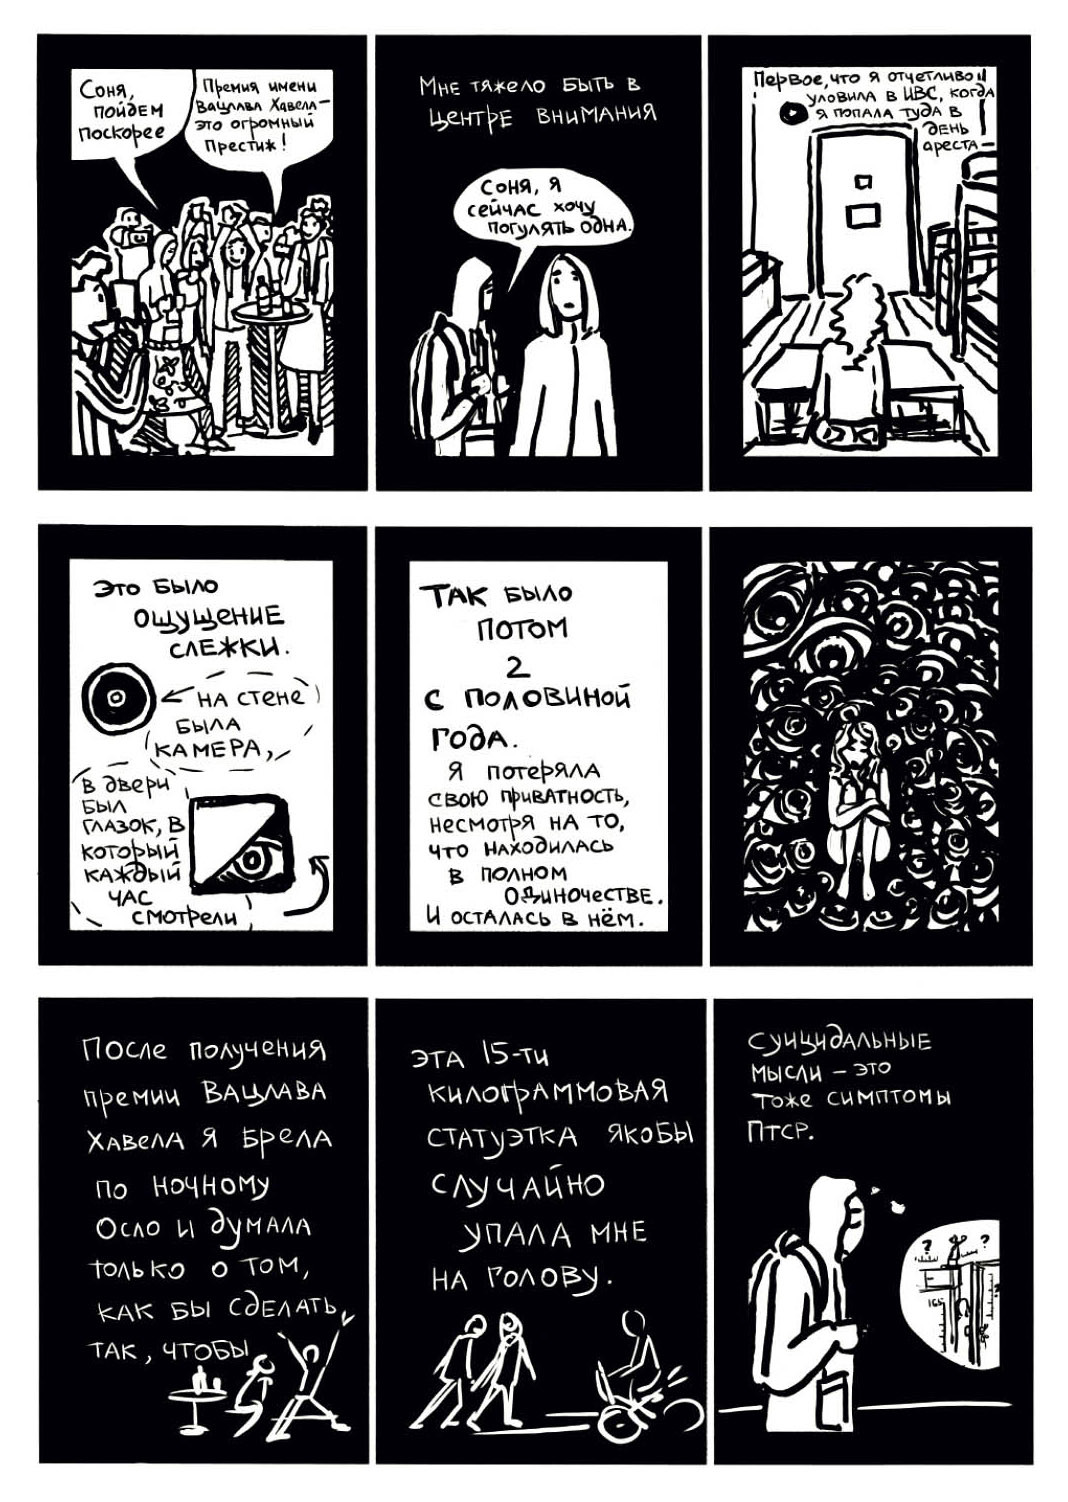 Соня,
пойдем
поскорее
Премия имени
Вацлава Хавела —
это огромный
Престиж!
Мне тяжело быть в
центре внимания
Соня, я
сейчас хочу
погулять одна.
Первое, что я отчетливо
уловила в ИВС, когда
я попала туда в
день
ареста —
Это было
ощущение
слежки.
на стене
была
камера,
в двери
был
глазок, в
который
каждый
час
смотрели
Так было
потом
2
с половиной
года.
Я потеряла
свою приватность,
несмотря на то,
что находилась
в полном
одиночестве.
И осталась в нём.
После получения
премии Вацлава
Хавела я брела
по ночному
Осло и думала
только о том,
как бы сделать
так, чтобы
эта 15-ти
килограммовая
статуэтка якобы
случайно
упала мне
на голову.
Суицидальные
мысли — это
тоже симптомы
ПТСР.
? ?
165